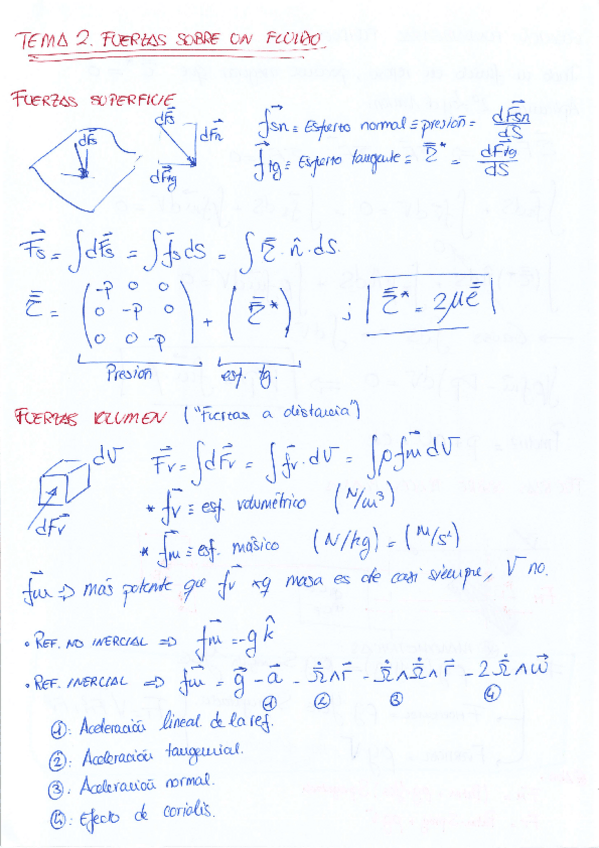 TEMA 2. FUERZAS SOBRE UN FLUIDO
FUERZAS SUPERFICIE
dF⃗s
dF⃗s
dF⃗n
dF⃗tg
f⃗sn ≡ Esfuerzo normal ≡ presión = dF⃗sn/dS
f⃗tg ≡ Esfuerzo tangente ≡ τ̿* = dF⃗tg/dS
F⃗s = ∫dF⃗s = ∫f⃗s dS = ∫τ̿ · n̂ · dS.
τ̿ = (-p 0 0; 0 -p 0; 0 0 -p) + (τ̿*) ; | τ̿* = 2μe̿ |
Presión
esf. tg.
FUERZAS VOLUMEN ("Fuerzas a distancia")
dV
dF⃗v
F⃗v = ∫dF⃗v = ∫f⃗v · dV = ∫ρf⃗m dV
* f⃗v ≡ esf. volumétrico (N/m³)
* f⃗m ≡ esf. másico (N/kg) = (m/s²)
f⃗m => más potente que f⃗v xq masa es cte casi siempre, V no.
• REF. NO INERCIAL => f⃗m = -g k̂
• REF. INERCIAL => f⃗m = g⃗ - a⃗ - Ω̇∧r⃗ - Ω̇∧Ω̇∧r⃗ - 2Ω̇∧ω⃗
① ② ③ ④
①: Aceleración lineal de la ref.
②: Aceleración tangencial.
③: Aceleración normal.
④: Efecto de coriolis.